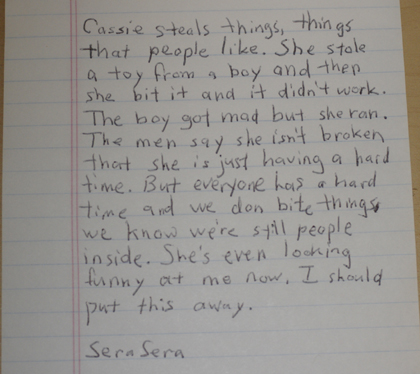 Cassie steals things, things
that people like. She stole
a toy from a boy and then
she bit it and it didn't work.
The boy got mad but she ran.
The men say she isn't broken
that she is just having a hard
time. But everyone has a hard
time and we don bite things,
we know we're still people
inside. She's even looking
funny at me now. I should
put this away.
SeraSera